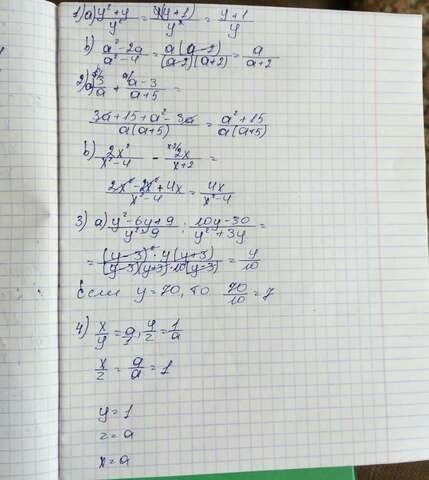 1) a) (y²+y)/y² = y(y+1)/y² = (y+1)/y
b) (a²-2a)/(a²-4) = a(a-2)/((a-2)(a+2)) = a/(a+2)
2) a) 3/a + (a-3)/(a+5) =
(3a+15+a²-3a)/(a(a+5)) = (a²+15)/(a(a+5))
b) 2x²/(x²-4) - 2x/(x+2) =
(2x²-2x²+4x)/(x²-4) = 4x/(x²-4)
3) a) (y²-6y+9)/(y²-9) : (10y-30)/(y²+3y) =
= ((y-3)²·y(y+3))/((y-3)(y+3)·10(y-3)) = y/10
Если y=70, то 70/10 = 7
4) x/y = a/1, y/z = 1/a
x/z = a/a = 1
y=1
z=a
x=a